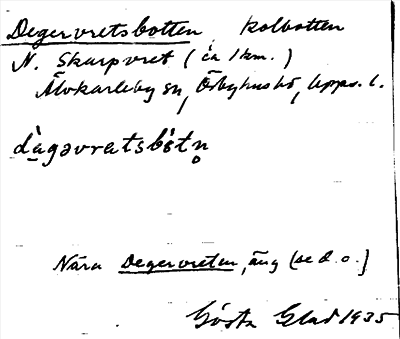 Degervretsbotten, kolbotten
N. Skarpvret (ca 1 km.)
Älvkarleby sn, Örbyhus hd, Upps. l.
dàgəvratsbòtn̥
Nära Degervreten, äng (se d. o.)
Gösta Glad 1935